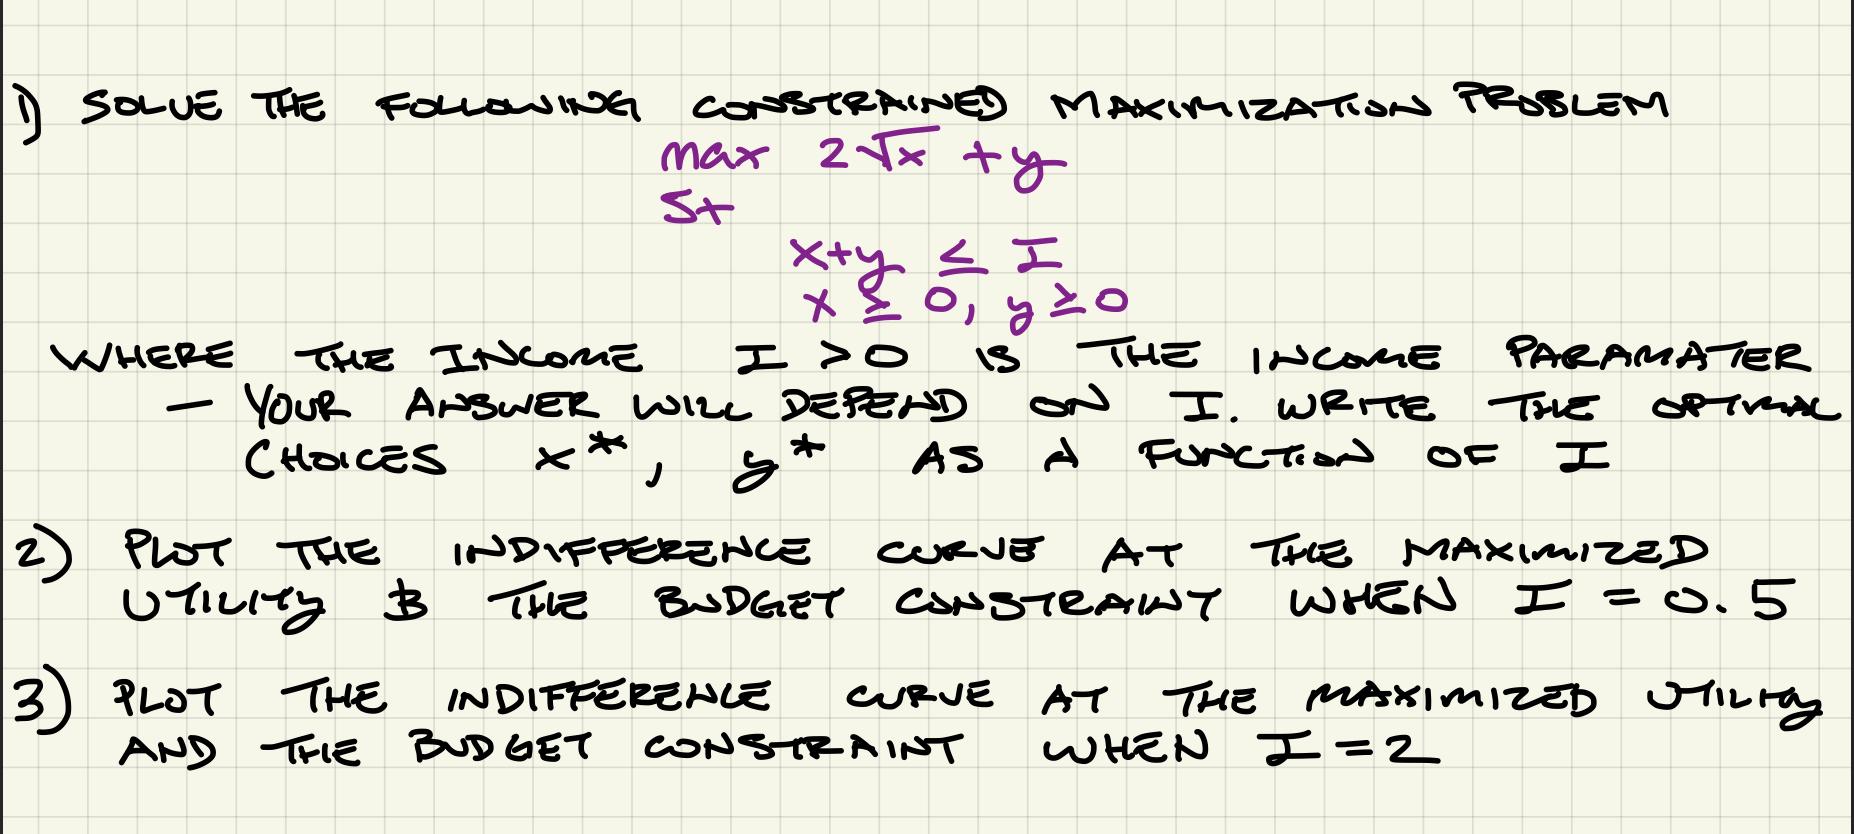 1) SOLVE THE FOLLOWING CONSTRAINED MAXIMIZATION PROBLEM
max 2√x + y
St
x+y ≤ I
x ≥ 0, y ≥ 0
WHERE THE INCOME I > 0 IS THE INCOME PARAMATER
— YOUR ANSWER WILL DEPEND ON I. WRITE THE OPTIMAL
CHOICES x*, y* AS A FUNCTION OF I
2) PLOT THE INDIFFERENCE CURVE AT THE MAXIMIZED
UTILITY & THE BUDGET CONSTRAINT WHEN I = 0.5
3) PLOT THE INDIFFERENCE CURVE AT THE MAXIMIZED UTILITY
AND THE BUDGET CONSTRAINT WHEN I = 2